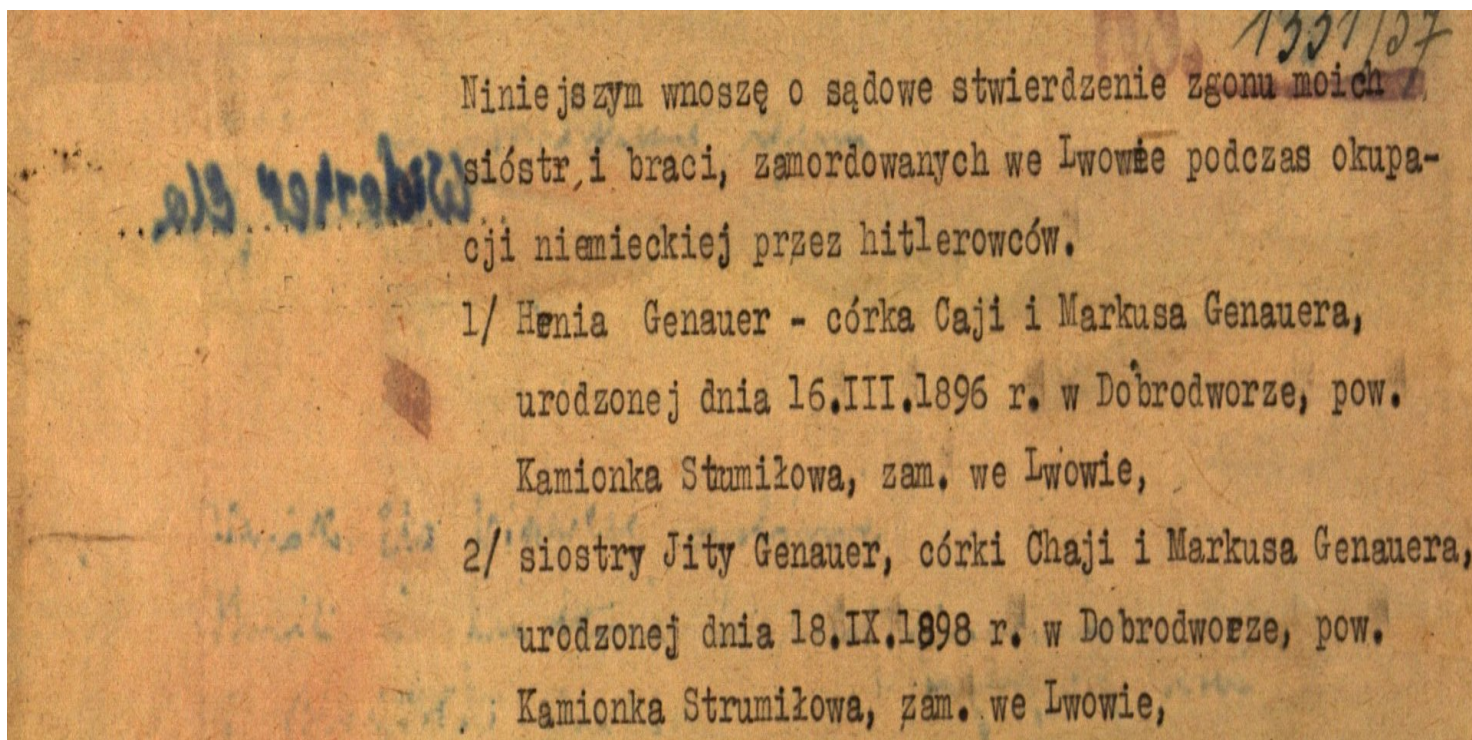 1331/57
Niniejszym wnoszę o sądowe stwierdzenie zgonu moich
sióstr i braci, zamordowanych we Lwowie podczas okupa-
cji niemieckiej przez hitlerowców.
1/ Henia Genauer - córka Caji i Markusa Genauera,
urodzonej dnia 16.III.1896 r. w Dobrodworze, pow.
Kamionka Stumiłowa, zam. we Lwowie,
2/ siostry Jity Genauer, córki Chaji i Markusa Genauera,
urodzonej dnia 18.IX.1898 r. w Dobrodworze, pow.
Kamionka Strumiłowa, zam. we Lwowie,